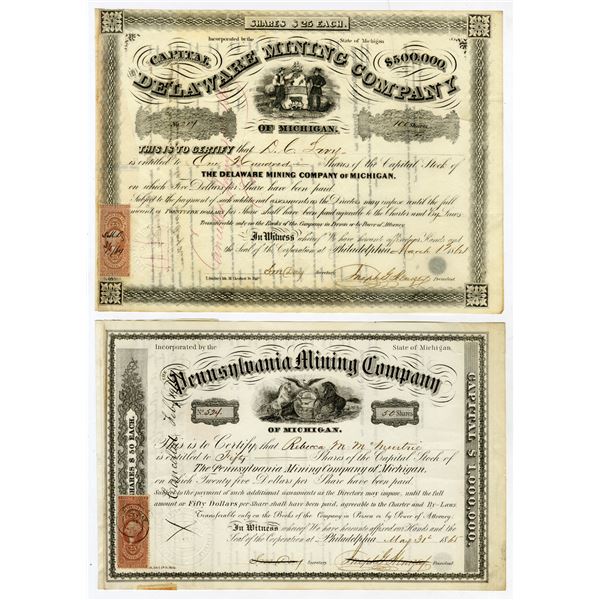 SHARES $25 EACH.
Incorporated by the State of Michigan
CAPITAL $500,000.
DELAWARE MINING COMPANY
OF MICHIGAN.
No. 100 Shares
THIS IS TO CERTIFY that D. C.
is entitled to One Hundred Shares of the Capital Stock of
THE DELAWARE MINING COMPANY OF MICHIGAN.
on which Five Dollars per Share have been paid
Subject to the payment of such additional assessments as the Directors may impose until the full
amount, or TWENTY FIVE DOLLARS per Share shall have been paid agreeable to the Charter and Bye-Laws
Transferable only on the Books of the Company in Person or by Power of Attorney.
In Witness whereof We have hereunto affixed our Hands and
the Seal of the Corporation at Philadelphia March
Secretary President
Incorporated by the State of Michigan.
Pennsylvania Mining Company
No. 524. 50 Shares
OF MICHIGAN.
SHARES $50 EACH.
CAPITAL $1,000,000.
Cancelled
This is to Certify, that Rebecca M. McMurtrie
is entitled to Fifty Shares of the Capital Stock of
The Pennsylvania Mining Company of Michigan.
on which Twenty five Dollars per Share have been paid
Subject to the payment of such additional assessments as the Directors may impose, until the full
amount or Fifty Dollars per Share shall have been paid, agreeable to the Charter and By-Laws
Transferable only on the Books of the Company in Person or by Power of Attorney.
In Witness whereof We have hereunto affixed our Hands and the
Seal of the Corporation at Philadelphia May 31st 1865
Secretary President